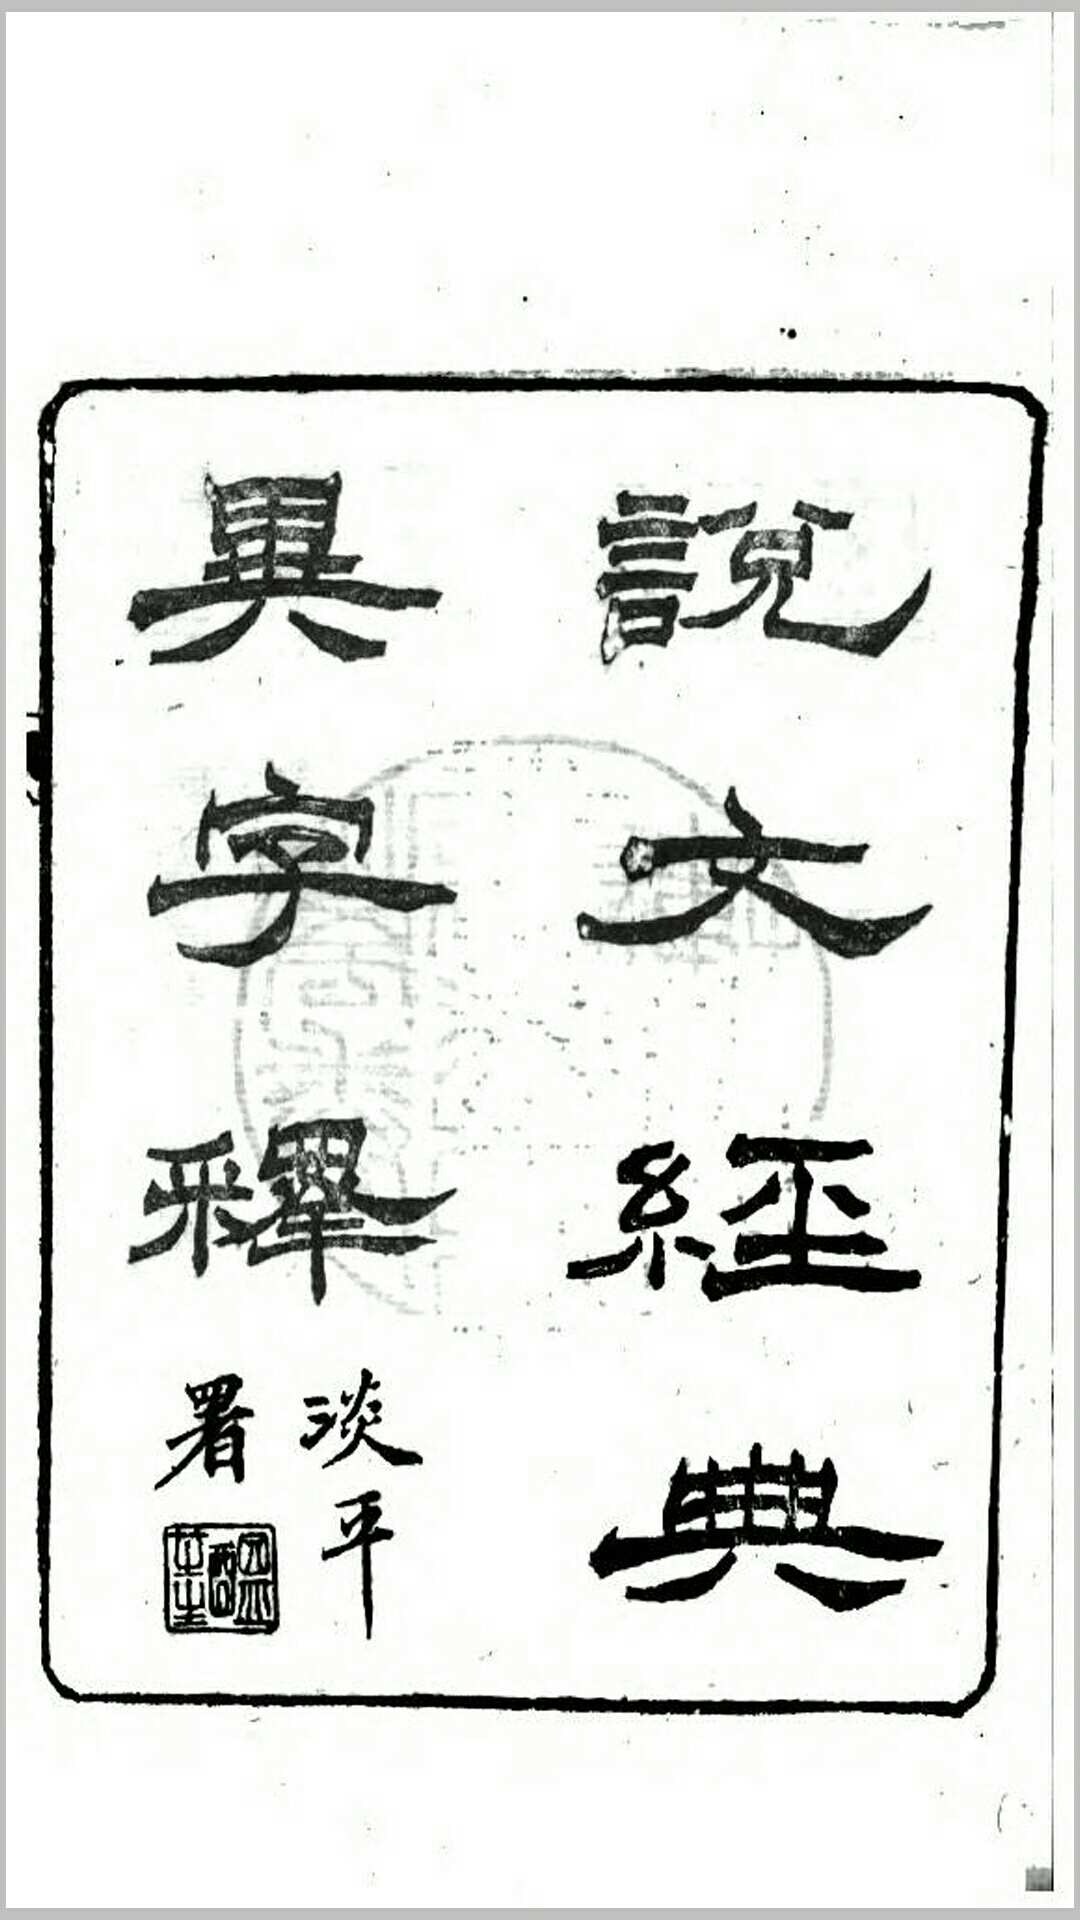 說文經典
異字釋
淡平
署